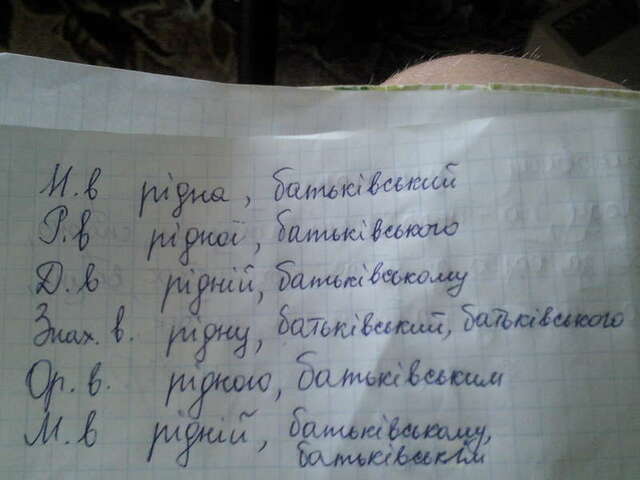 Н.в рідна, батьківський
Р.в рідної, батьківського
Д.в рідній, батьківському
Знах. в. рідну, батьківський, батьківського
Ор. в. рідною, батьківським
М.в рідній, батьківському,
батьківськім